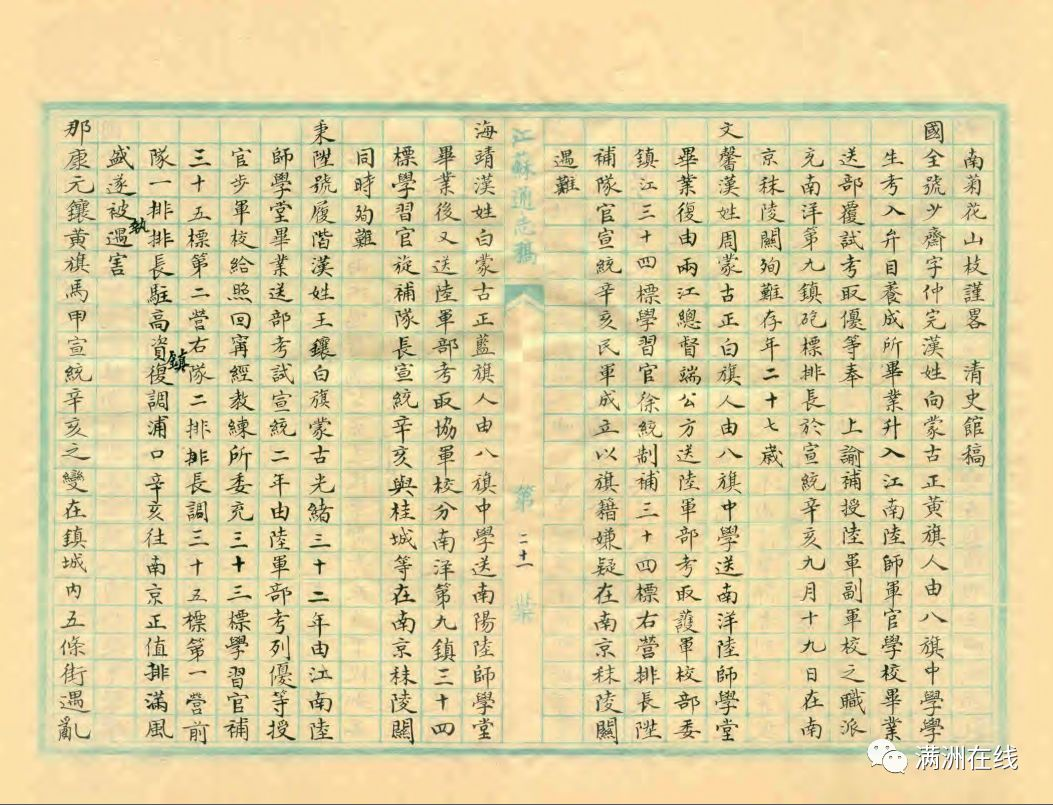 南菊花山枝謹畧　清史館稿
國全號少齋字仲完漢姓向蒙古正黃旗人由八旗中學學
生考入弁目養成所畢業升入江南陸師軍官學校畢業
送部覆試考取優等奉　上諭補授陸軍副軍校之職派
充南洋第九鎮砲標排長於宣統辛亥九月十九日在南
京秣陵關殉難存年二十七歲
文馨漢姓周蒙古正白旗人由八旗中學送南洋陸師學堂
畢業復由兩江總督端公方送陸軍部考取護軍校部委
鎮江三十四標學習官徐統制補三十四標右營排長陞
補隊官宣統辛亥民軍成立以旗籍嫌疑在南京秣陵關
遇難
江蘇通志稿
第二十一葉
海靖漢姓白蒙古正藍旗人由八旗中學送南陽陸師學堂
畢業後又送陸軍部考取協軍校分南洋第九鎮三十四
標學習官旋補隊長宣統辛亥與桂城等在南京秣陵關
同時殉難
秉陞號履階漢姓王鑲白旗蒙古光緒三十二年由江南陸
師學堂畢業送部考試宣統二年由陸軍部考列優等授
官步軍校給照回甯經教練所委充三十三標學習官補
三十五標第二營右隊二排排長調三十五標第一營前
隊一排排長駐高資鎮復調浦口辛亥往南京正值排滿風
盛遂被執遇害
那康元鑲黃旗馬甲宣統辛亥之變在鎮城內五條街遇亂
满洲在线